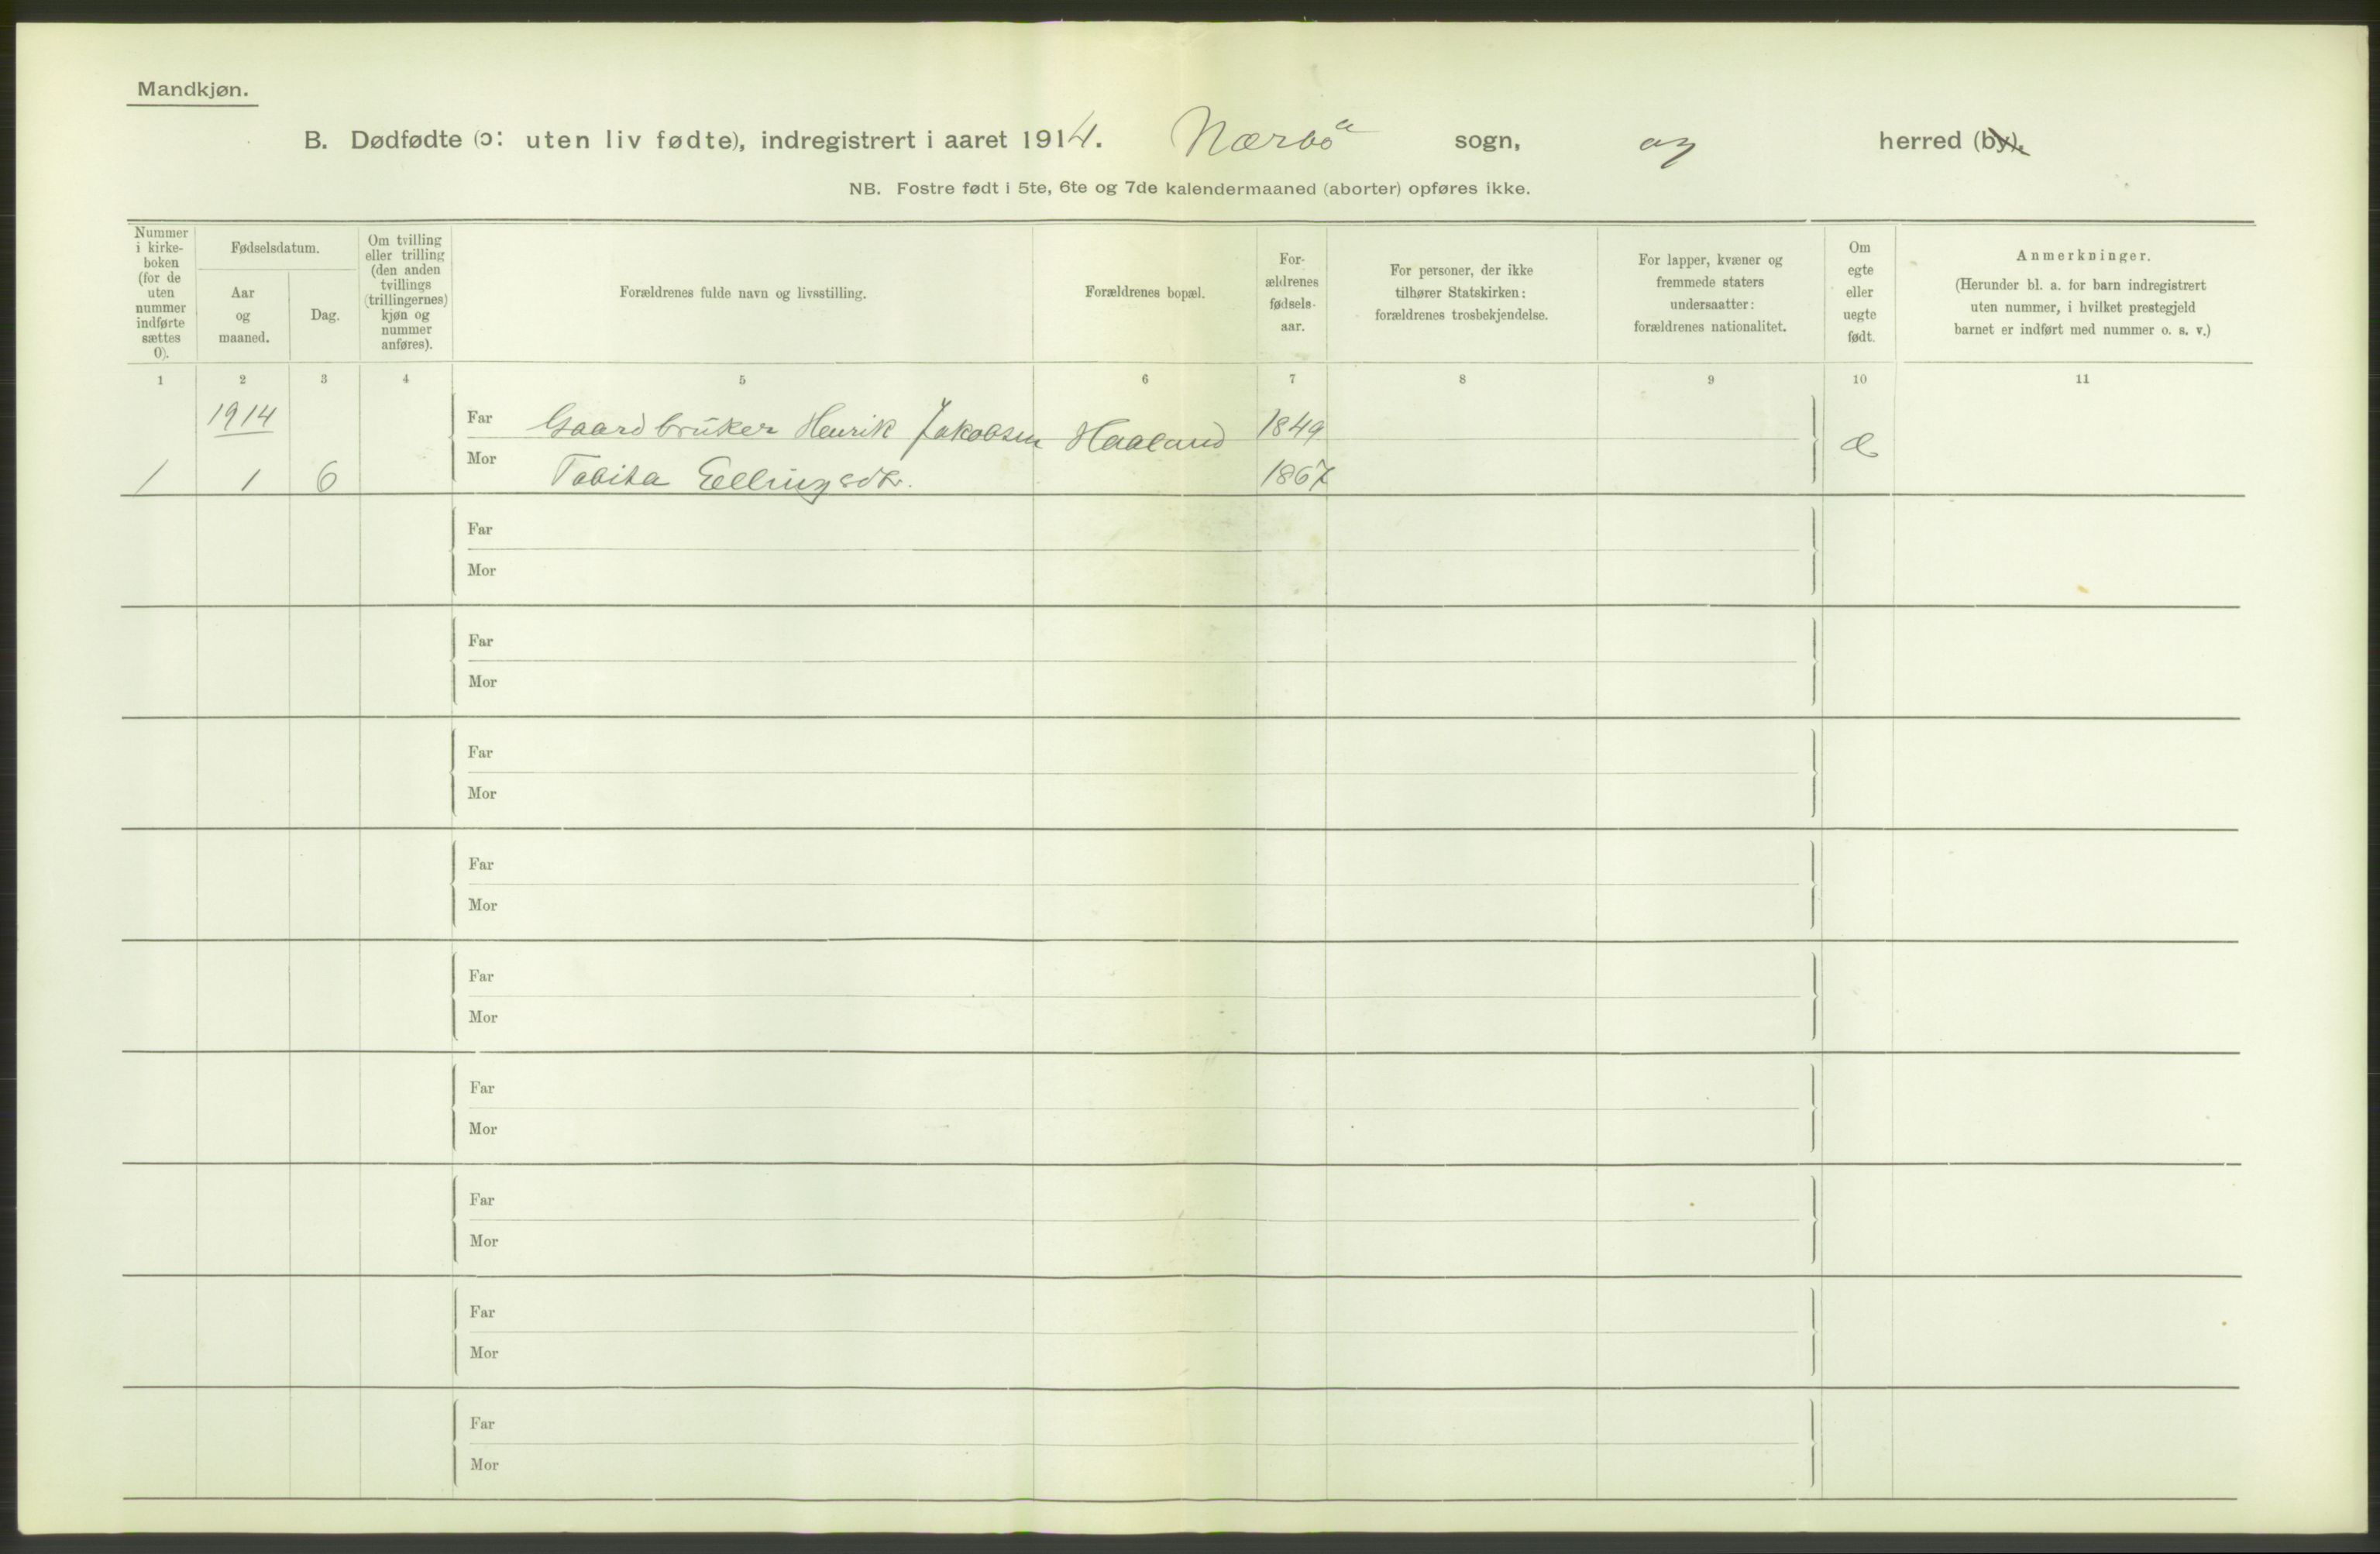 Mandkjøn.
B. Dødfødte (ɔ: uten liv fødte), indregistrert i aaret 1914. Nærbøa sogn, og herred (by).
NB. Fostre født i 5te, 6te og 7de kalendermaaned (aborter) opføres ikke.
Nummer
i kirke-
boken
(for de
uten
nummer
indførte
sættes
0).
Fødselsdatum.
Aar
og
maaned.
Dag.
Om tvilling
eller trilling
(den anden
tvillings
(trillingernes)
kjøn og
nummer
anføres).
Forældrenes fulde navn og livsstilling.
Forældrenes bopæl.
For-
ældrenes
fødsels-
aar.
For personer, der ikke
tilhører Statskirken:
forældrenes trosbekjendelse.
For lapper, kvæner og
fremmede staters
undersaatter:
forældrenes nationalitet.
Om
egte
eller
uegte
født.
Anmerkninger.
(Herunder bl. a. for barn indregistrert
uten nummer, i hvilket prestegjeld
barnet er indført med nummer o. s. v.)
1 2 3 4 5 6 7 8 9 10 11
1914 Far Gaardbruker Henrik Jakobsen Haaland 1849 Æ
1 1 6 Mor Tobita Ellingsdtr. 1867
Far
Mor
Far
Mor
Far
Mor
Far
Mor
Far
Mor
Far
Mor
Far
Mor
Far
Mor
Far
Mor